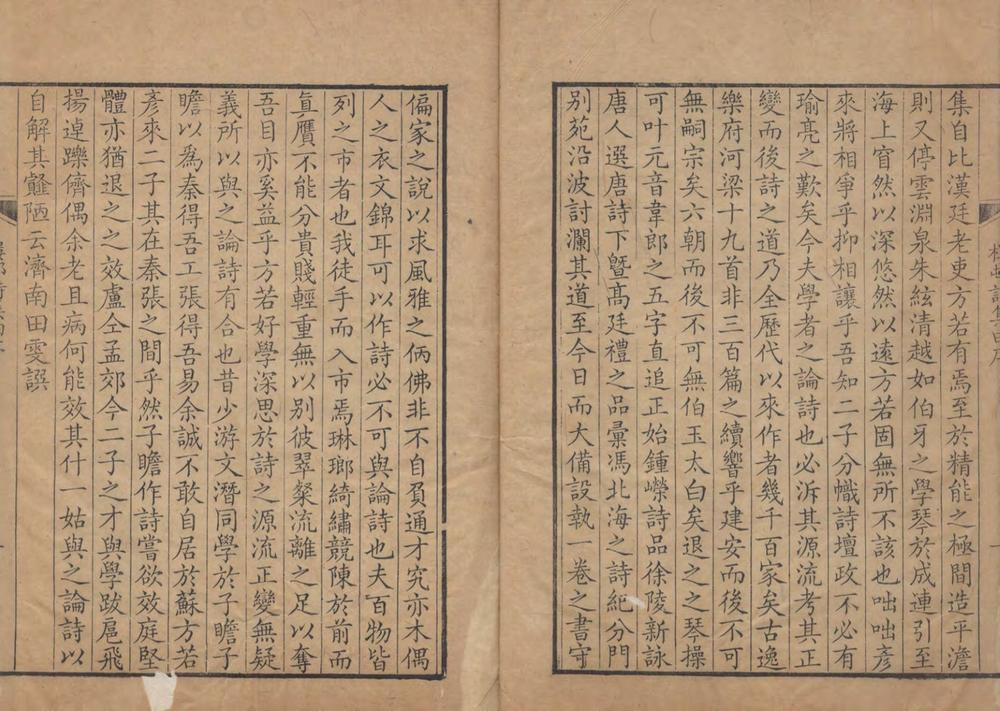 集自比漢廷老吏方若有焉至於精能之極間造平澹
則又停雲淵泉朱絃清越如伯牙之學琴於成連引至
海上窅然以深悠然以遠方若固無所不該也咄咄彥
來將相爭乎抑相讓乎吾知二子分幟詩壇政不必有
瑜亮之歎矣今夫學者之論詩也必泝其源流考其正
變而後詩之道乃全歷代以來作者幾千百家矣古逸
樂府河梁十九首非三百篇之續響乎建安而後不可
無嗣宗矣六朝而後不可無伯玉太白矣退之之琴操
可叶元音韋郎之五字直追正始鍾嶸詩品徐陵新詠
唐人選唐詩下曁髙廷禮之品彙馮北海之詩紀分門
别苑沿波討瀾其道至今日而大備設執一卷之書守
偏家之說以求風雅之俩佛非不自負通才究亦木偶
人之衣文錦耳可以作詩必不可與論詩也夫百物皆
列之市者也我徒手而入市焉琳瑯綺繡競陳於前而
眞贋不能分貴賤輕重無以别彼翠粲流離之足以奪
吾目亦奚益乎方若好學深思於詩之源流正變無疑
義所以與之論詩有合也昔少游文潛同學於子瞻子
瞻以爲秦得吾工張得吾易余誠不敢自居於蘇方若
彥來二子其在秦張之間乎然子瞻作詩嘗欲效庭堅
體亦猶退之之效盧仝孟郊今二子之才與學跋扈飛
揚逴躒儕偶余老且病何能效其什一姑與之論詩以
自解其龤陋云濟南田雯譔